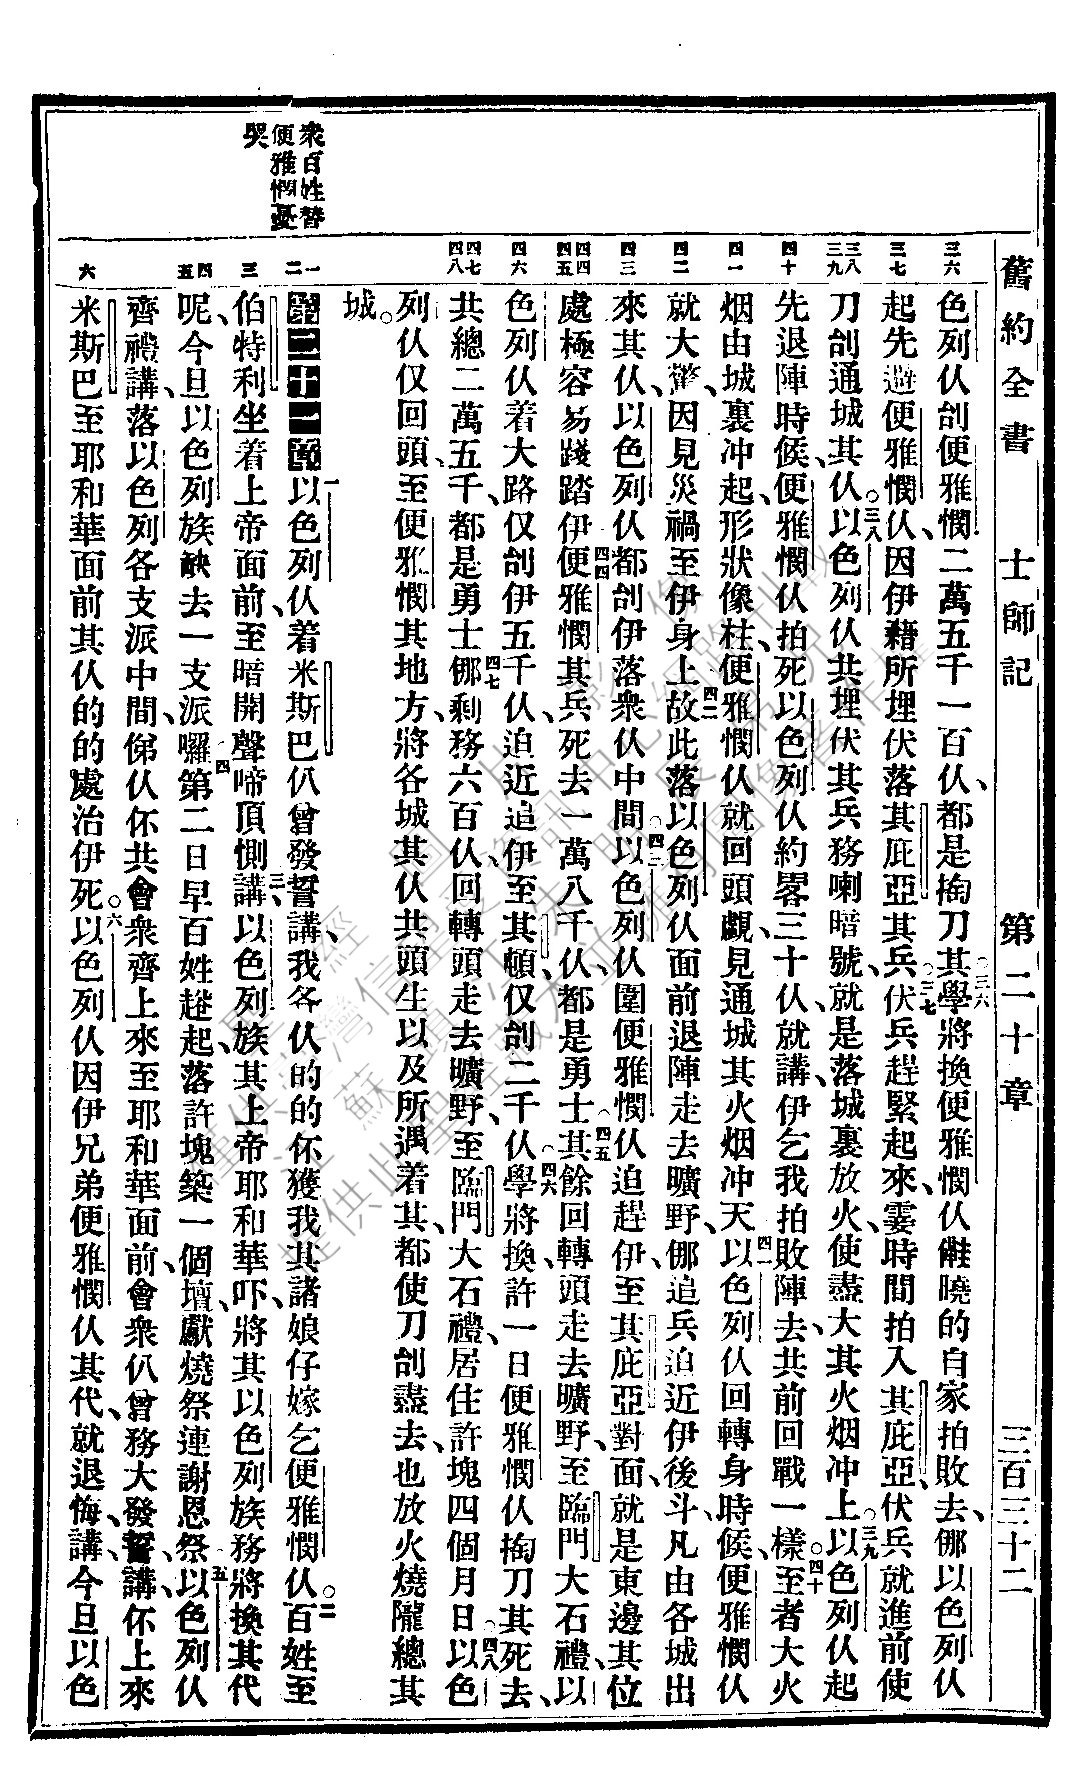 舊約全書 士師記 第二十章 三百三十二
衆百姓替
便雅憫憂
哭
色列仈刣便雅憫二萬五千一百仈、都是掏刀其。三六學將換便雅憫仈曉的自家拍敗去、㑚以色列仈
起先避便雅憫仈、因伊藉所埋伏落其庇亞其兵。三七伏兵趕緊起來、霎時間拍入其庇亞、伏兵就進前使
刀刣通城其仈。三八以色列仈共埋伏其兵務喇暗號、就是落城裏放火、使盡大其火烟冲上。三九以色列仈起
先退陣時候、便雅憫仈拍死以色列仈約畧三十仈、就講、伊乞我拍敗陣去、共前回戰一樣。四十至者大火
烟由城裏冲起、形狀像柱、便雅憫仈就回頭覷見通城其火烟冲天。四一以色列仈回轉身時候、便雅憫仈
就大驚、因見災禍至伊身上。四二故此落以色列仈面前退陣走去曠野、㑚追兵迫近伊後斗、凡由各城出
來其仈、以色列仈都刣伊落衆仈中間。四三以色列仈圍便雅憫仈、迫趕伊至其庇亞對面、就是東邊其位
處、極容易踐踏伊。四四便雅憫其兵死去一萬八千仈、都是勇士。四五其餘回轉頭走去曠野、至臨門大石禮、以
色列仈着大路仅刣伊五千仈、迫近追伊至其頓、仅刣二千仈。四六學將換許一日便雅憫仈掏刀其死去、
共總二萬五千、都是勇士。四七㑚剩務六百仈、回轉頭走去曠野、至臨門大石禮、居住許塊四個月日。四八以色
列仈仅回頭、至便雅憫其地方、將各城其仈共頭生以及所遇着其、都使刀刣盡去、也放火燒隴總其
城。
第二十一章 一以色列仈着米斯巴仈曾發誓講、我各仈的的伓獲我其諸娘仔嫁乞便雅憫仈。二百姓至
伯特利坐着上帝面前、至暗開聲啼頂惻、三講、以色列族其上帝耶和華吓、將其以色列族務將換其代
呢、今旦以色列族缺去一支派囉。四第二日早百姓趖起、落許塊築一個壇、獻燒祭連謝恩祭。五以色列仈
齊禮講、落以色列各支派中間、俤仈伓共會衆齊上來至耶和華面前、會衆仈曾務大發誓講、伓上來
米斯巴至耶和華面前其仈的的處治伊死。六以色列仈因伊兄弟便雅憫仈其代、就退悔、講、今旦以色